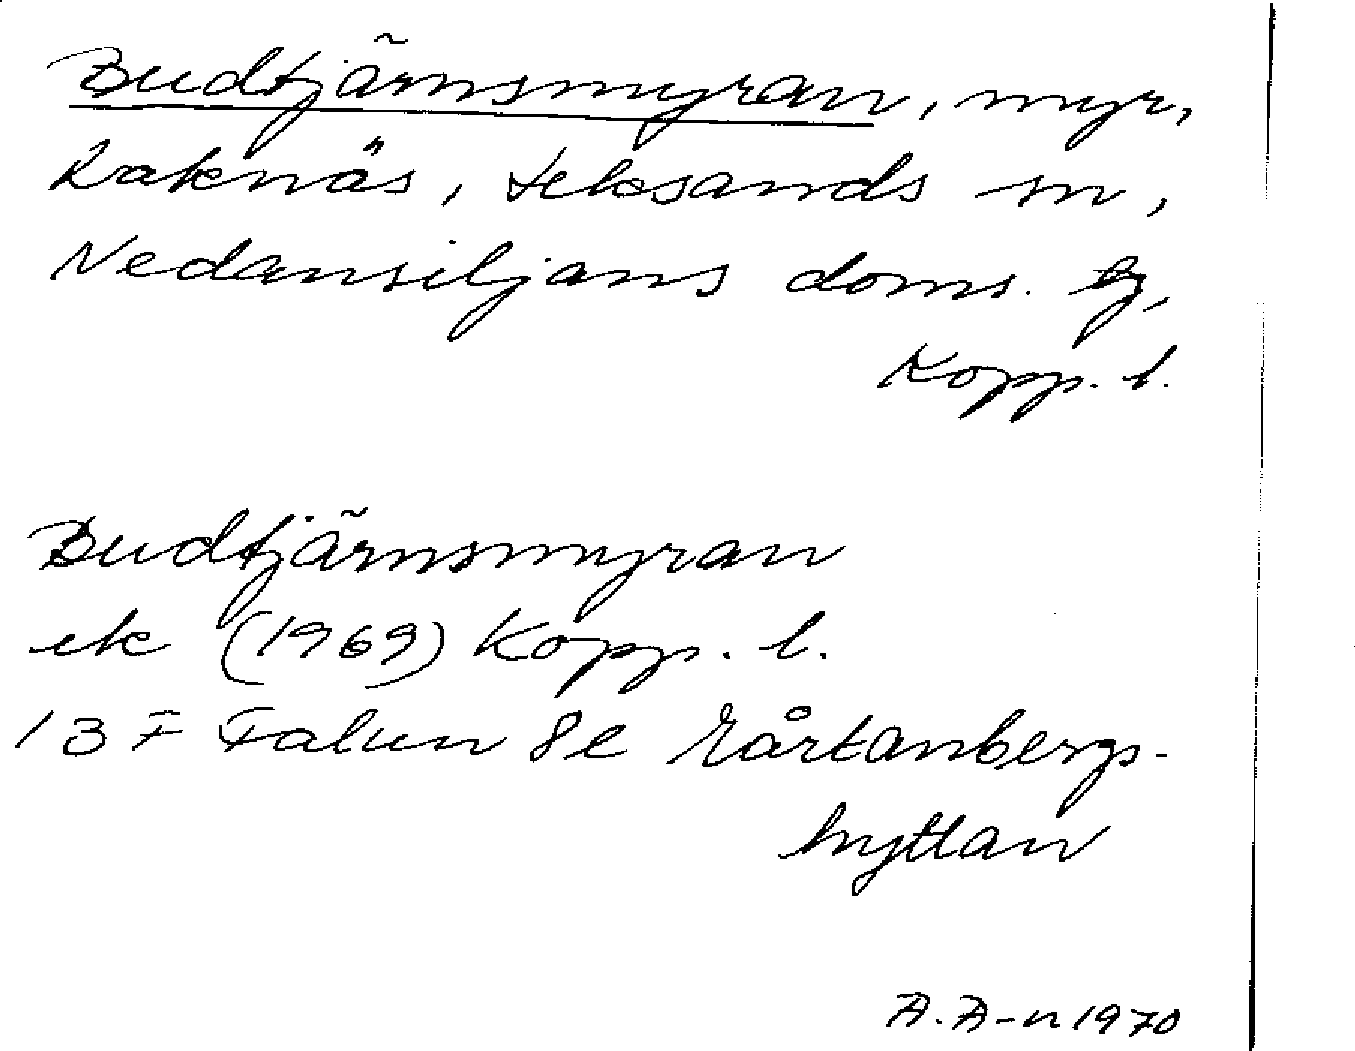 Budtjärnsmyran, myr,
Laknäs, Leksands sn,
Nedansiljans doms. tg,
Kopp. l.
Budtjärnsmyran
ek (1969) Kopp. l.
13 F Falun 8e Rårtanbergs-
hyttan
A. A-n 1970